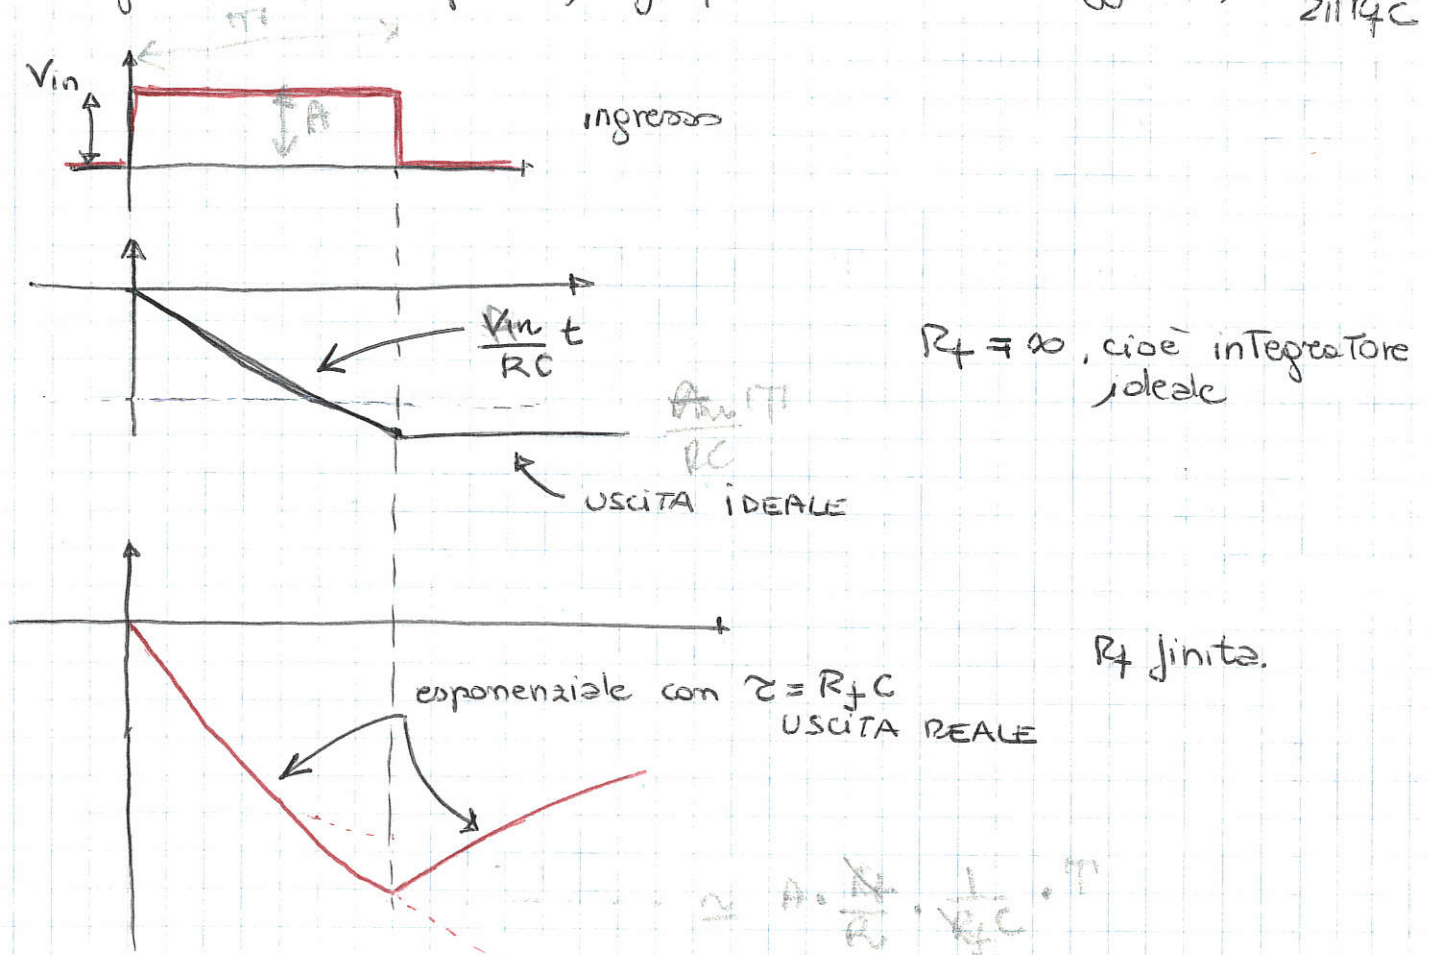 2πRfC
T
Vin
A
ingresso
Vin t
RC
Rf = ∞, cioè inTegraTore
ideale
T
RC
USCiTA iDEALE
Rf finita.
esponenziale con τ = RfC
USCiTA REALE
≃ A · Rf/R · 1/RfC · T